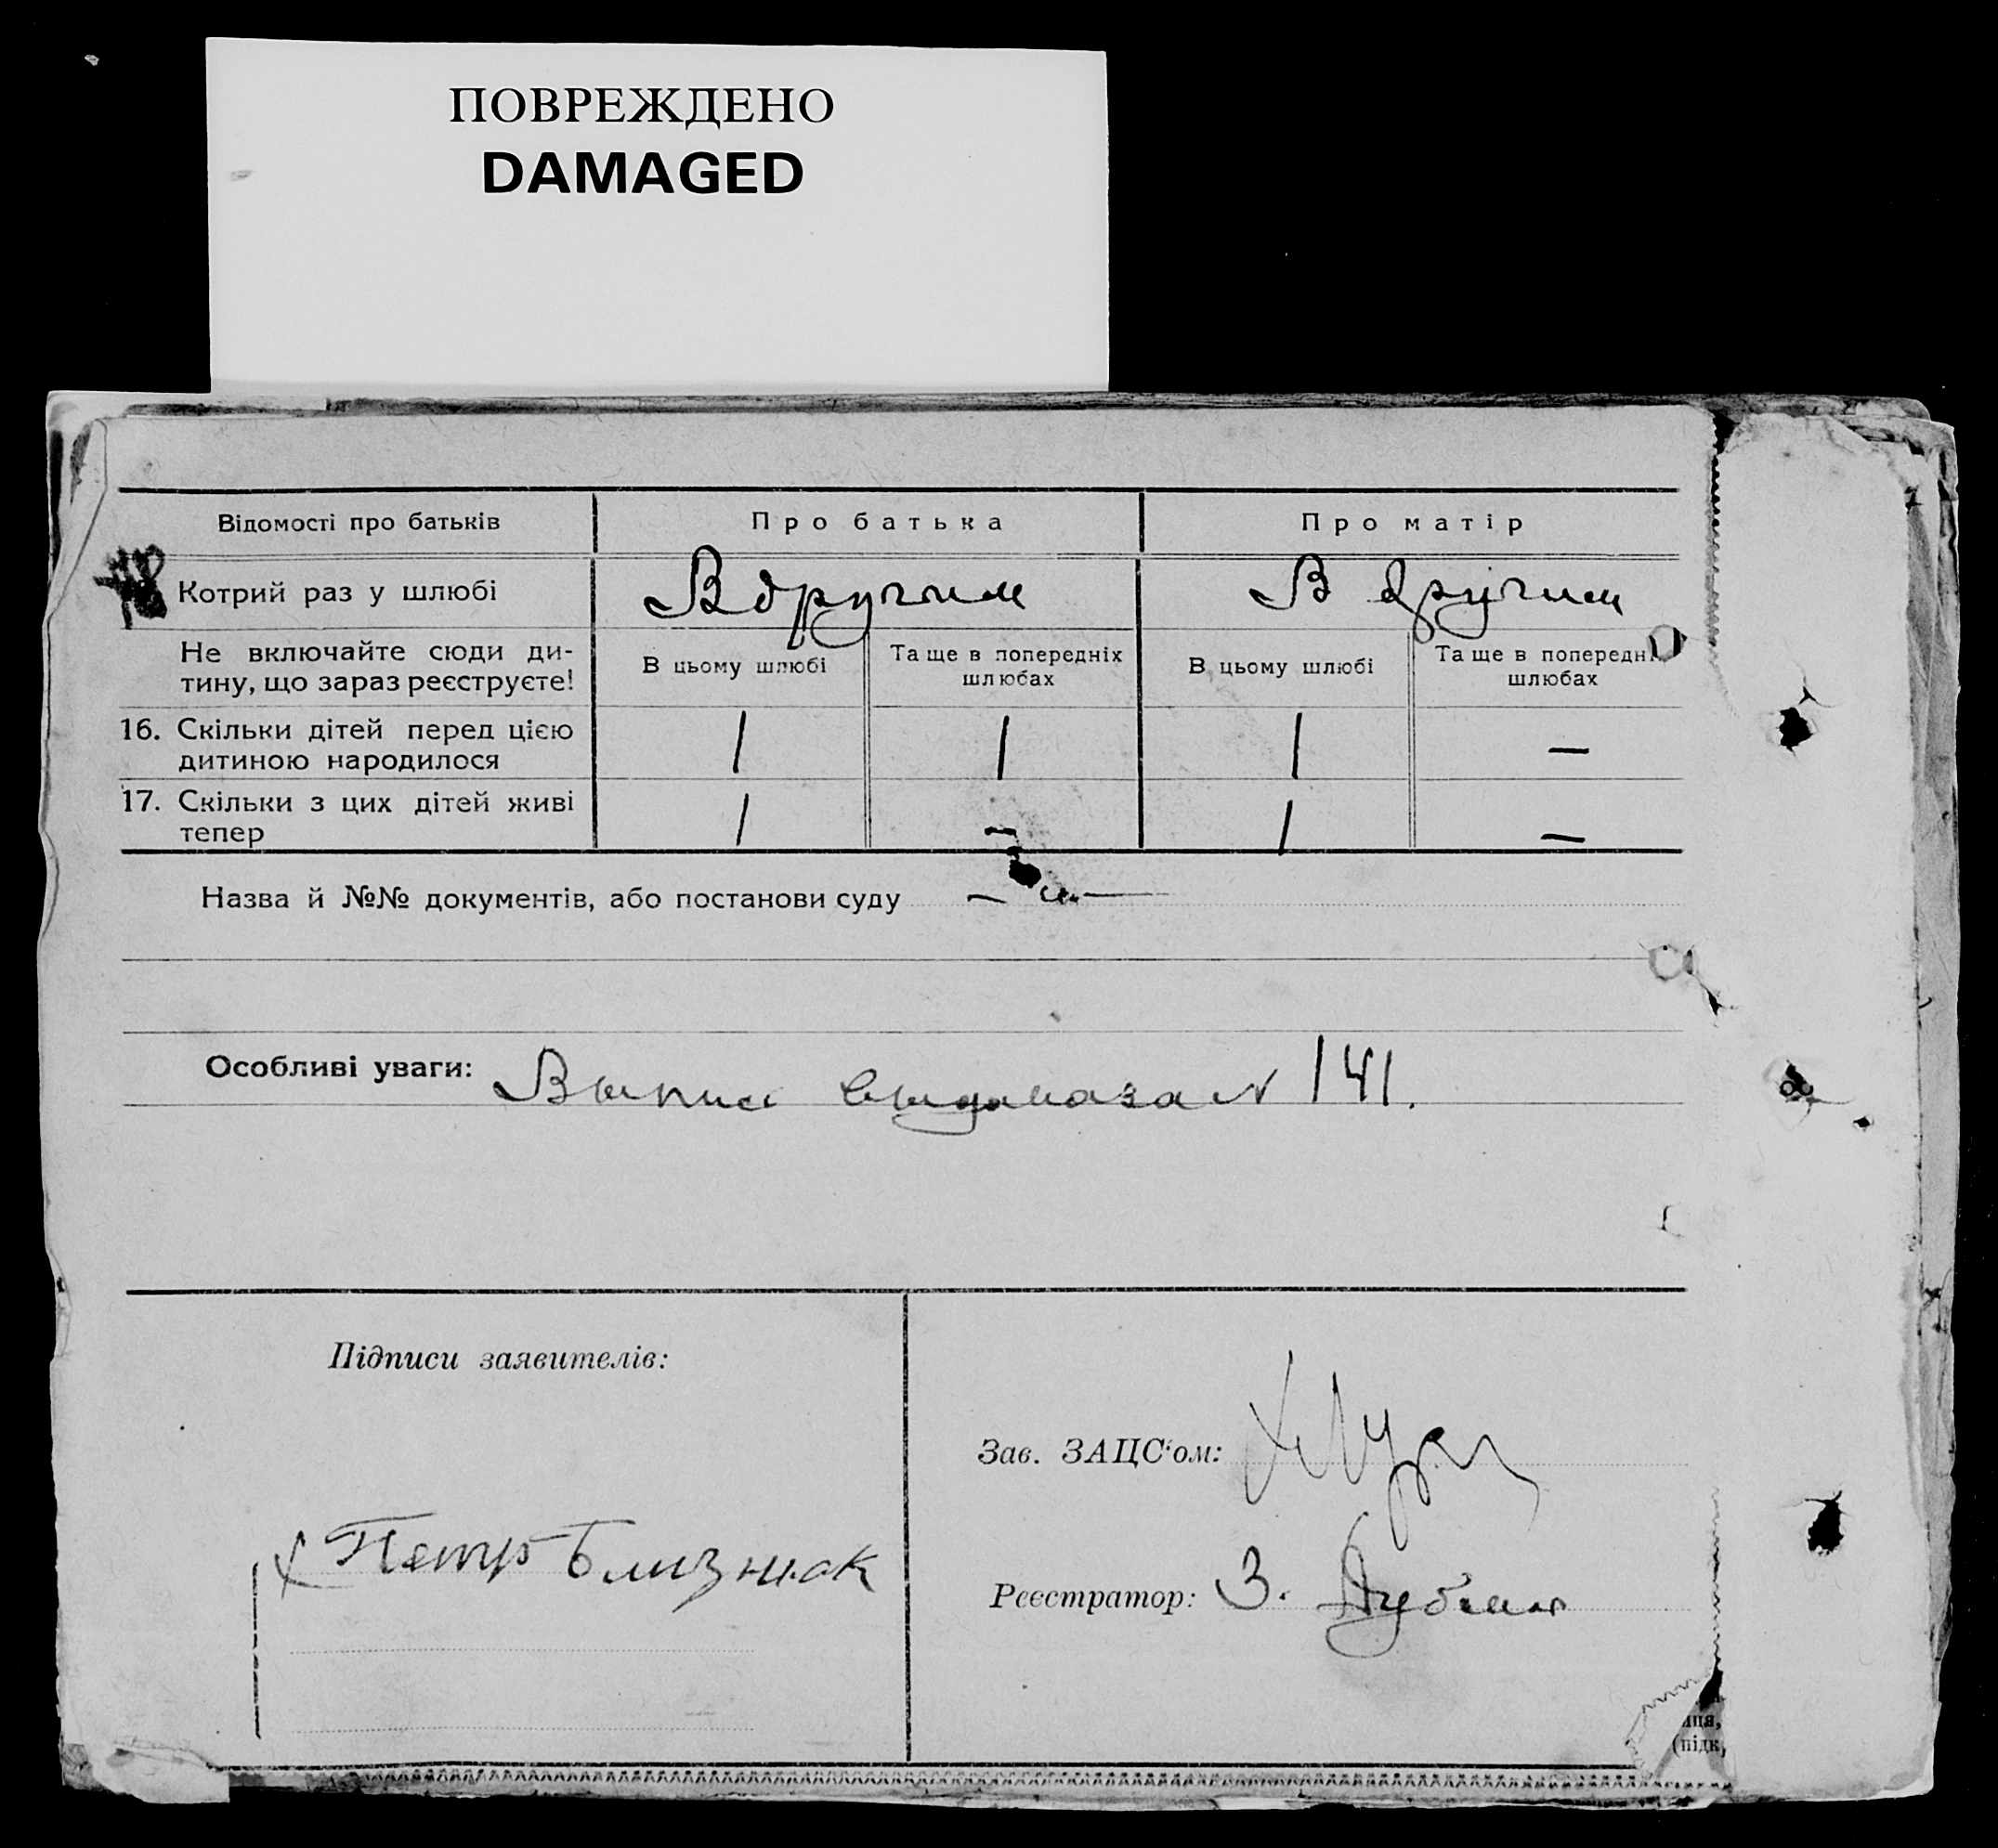 ПОВРЕЖДЕНО
DAMAGED
Відомості про батьків
Про батька
Про матір
Котрий раз у шлюбі
В другим
В другим
Не включайте сюди ди-
тину, що зараз реєструєте!
В цьому шлюбі
Та ще в попередніх
шлюбах
В цьому шлюбі
Та ще в попередні
шлюбах
16. Скільки дітей перед цією
дитиною народилося
1
1
1
—
17. Скільки з цих дітей живі
тепер
1
—
1
—
Назва й №№ документів, або постанови суду
Особливі уваги:
Выпис выдана за N 141.
Підписи заявителів:
Петр Близнюк
Зав. ЗАЦС'ом:
Реєстратор: З.
иця,
(підк,